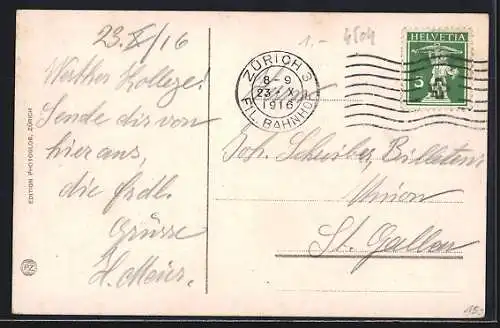 23.X/16
Werther Kollege!
Sende dir von
hier aus,
die frdl.
Grüsse
H. Meier.
EDITION PHOTOGLOB, ZÜRICH
PZ
1.- 4504
ZÜRICH 3
8-9
23.X.
1916
FIL. BAHNHOF
HELVETIA
5
Joh. Schreiber, Billeteur
Union
St. Gallen